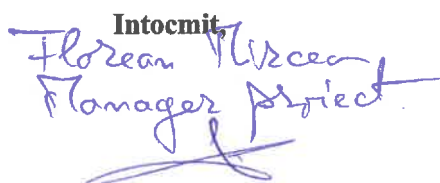 Intocmit,
Florean Mircea
Manager proiect